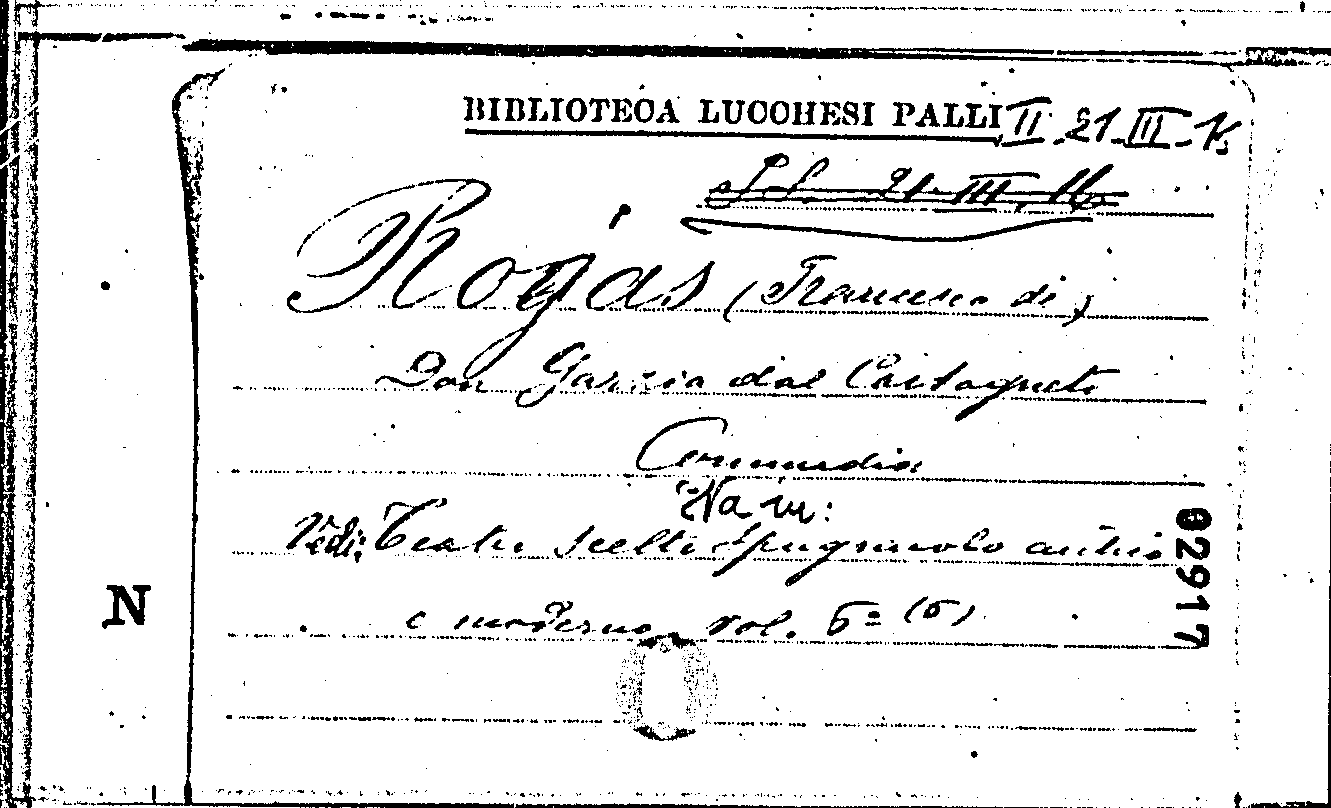 BIBLIOTECA LUCCHESI PALLI II. 21. III. K
21 III. 16
Rojas (Francesco di)
Don Garzia dal Castagneto
Commedia
Vedi: Teatro scelto spagnuolo antico
e moderno vol. 5º (5)
N
82917